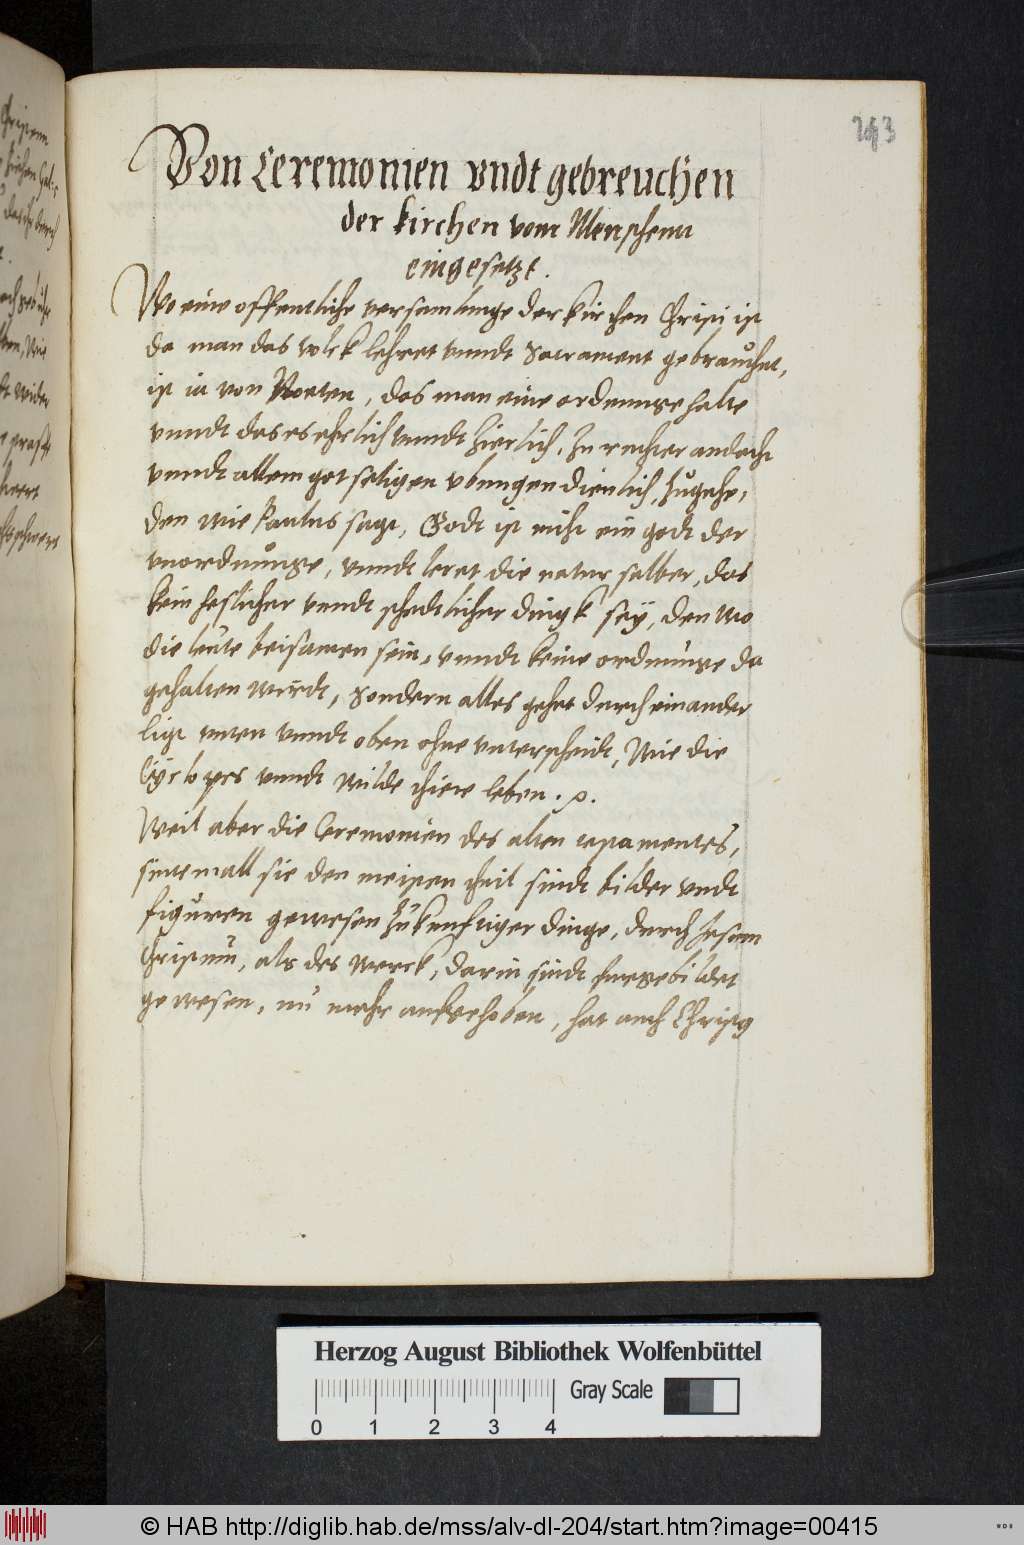 243
Von Ceremonien vndt gebreuchen
der kirchen vom Menschenn
eingesetzt.
Wo eine offentliche versamlunge der kirchen Christi ist
da man das volck lehret vnndt Sacrament gebrauchet,
ist ia von Noeten, das man eine ordnunge halte
vnndt das es ehrlich vnndt zierlich, zu rechter andacht
vnndt allem gotseligen vbungen dienlich, zugehe,
den wie Paulus sagt, Godt ist nicht ein godt der
vnordnunge, vnndt leret die natur selber, das
kein heslicher vnndt schedtlicher dingk sey, den wo
die leute beisamen sein, vnndt keine ordnunge da
gehalten wurdt, Sondern alles gehet durch einander
ligt vnten vnndt oben ohne vnterscheidt, Wie die
Cyclopes vnndt wilde thiere leben.
Weil aber die Ceremonien des alten testamentes,
sintemall sie den meisten theil sindt bilder vndt
figuren gewesen zukunftiger dinge, durch Jesum
Christum, als des werck, darin sindt furgebildet
gewesen, nu mehr aufgehoben, hat auch Christus
Herzog August Bibliothek Wolfenbüttel
0 1 2 3 4
Gray Scale
© HAB http://diglib.hab.de/mss/alv-dl-204/start.htm?image=00415